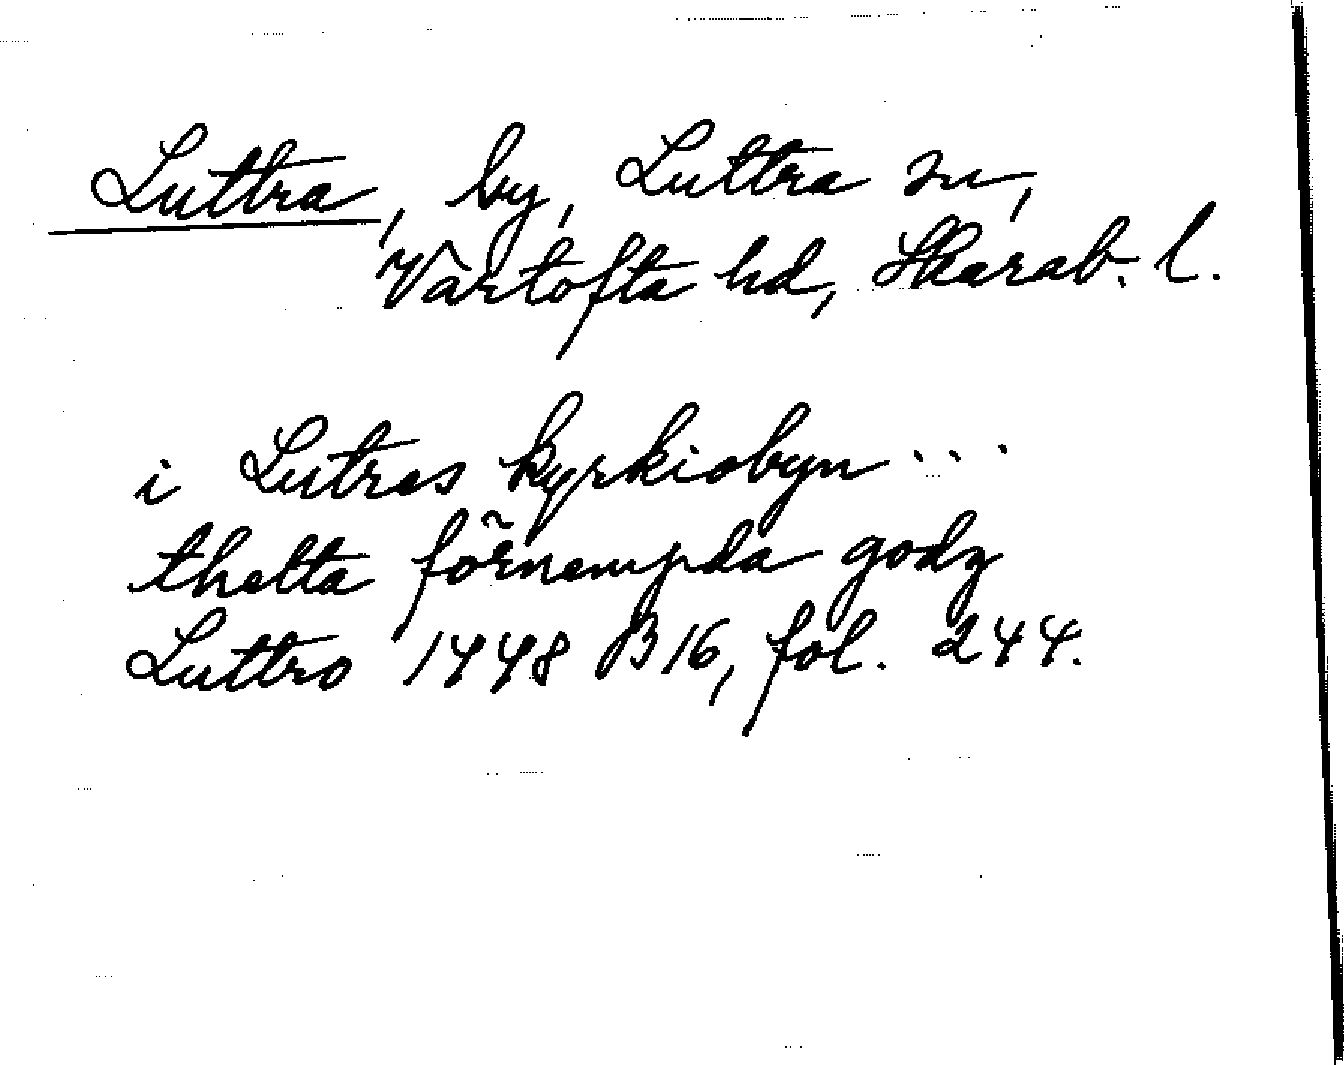 Luttra, by, Luttra sn,
Vartofta hd, Skarab. l.
i Lutres kyrkiobyn ...
thetta förnempda godz
Luttro 1448 B 16, fol. 244.